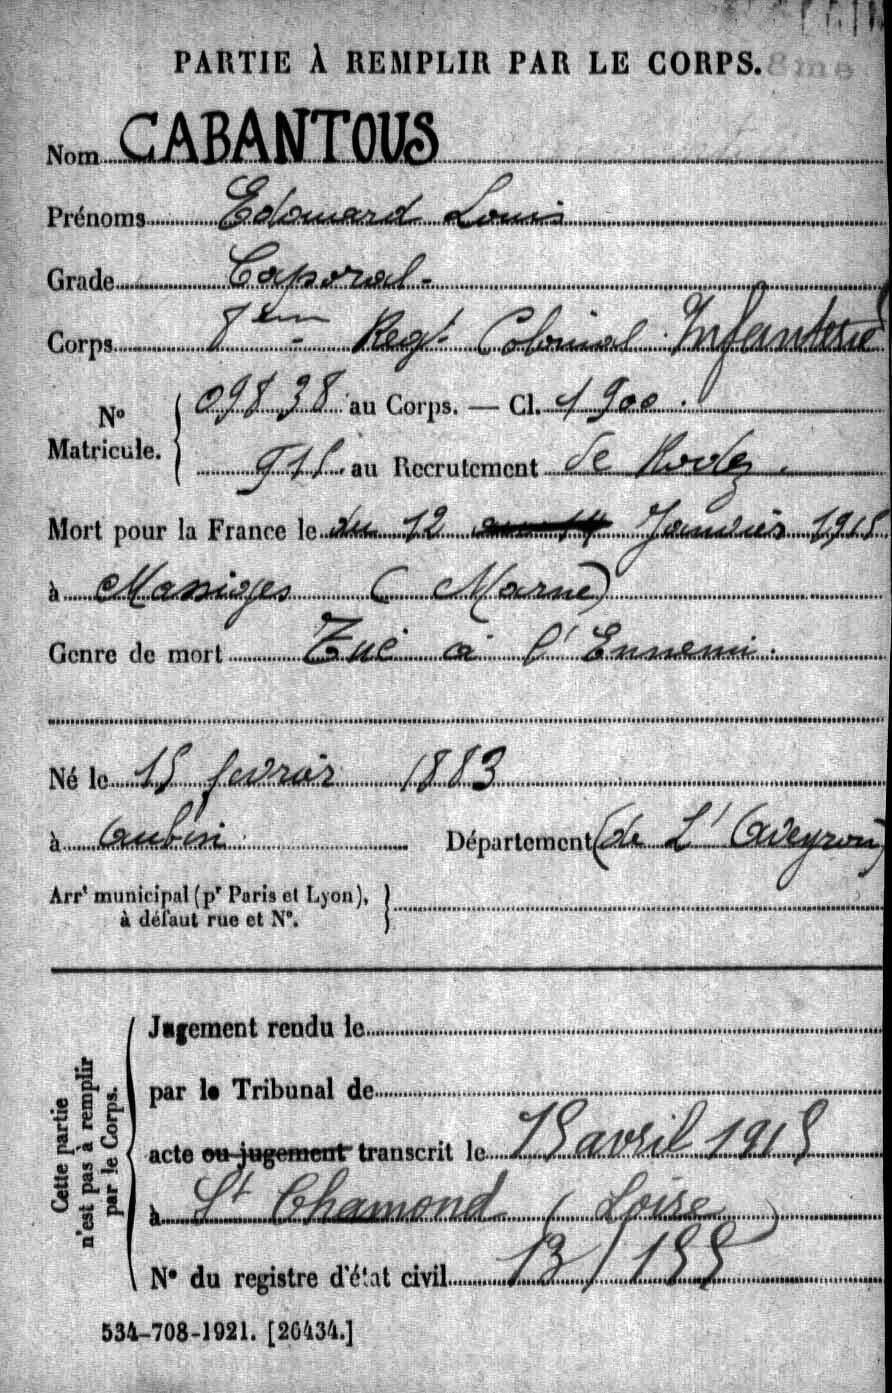 PARTIE À REMPLIR PAR LE CORPS.
8me
Nom CABANTOUS
Prénoms Edouard Louis
Grade Caporal -
Corps 8ème Regt Colonial Infanterie
N° Matricule. { 09838 au Corps. — Cl. 1900.
915 au Recrutement de Rodez.
Mort pour la France le du 12 au 14 Janvier 1915
à Massiges (Marne)
Genre de mort Tué à l'Ennemi.
Né le 15 fevrier 1883
à Aubin Département (de L'Aveyron)
Arrt municipal (pr Paris et Lyon),
à défaut rue et N°. }
Cette partie
n'est pas à remplir
par le Corps.
Jugement rendu le
par le Tribunal de
acte ou jugement transcrit le 15 avril 1915
à St Chamond (Loire)
N° du registre d'état civil 13/155
534-708-1921. [26434.]